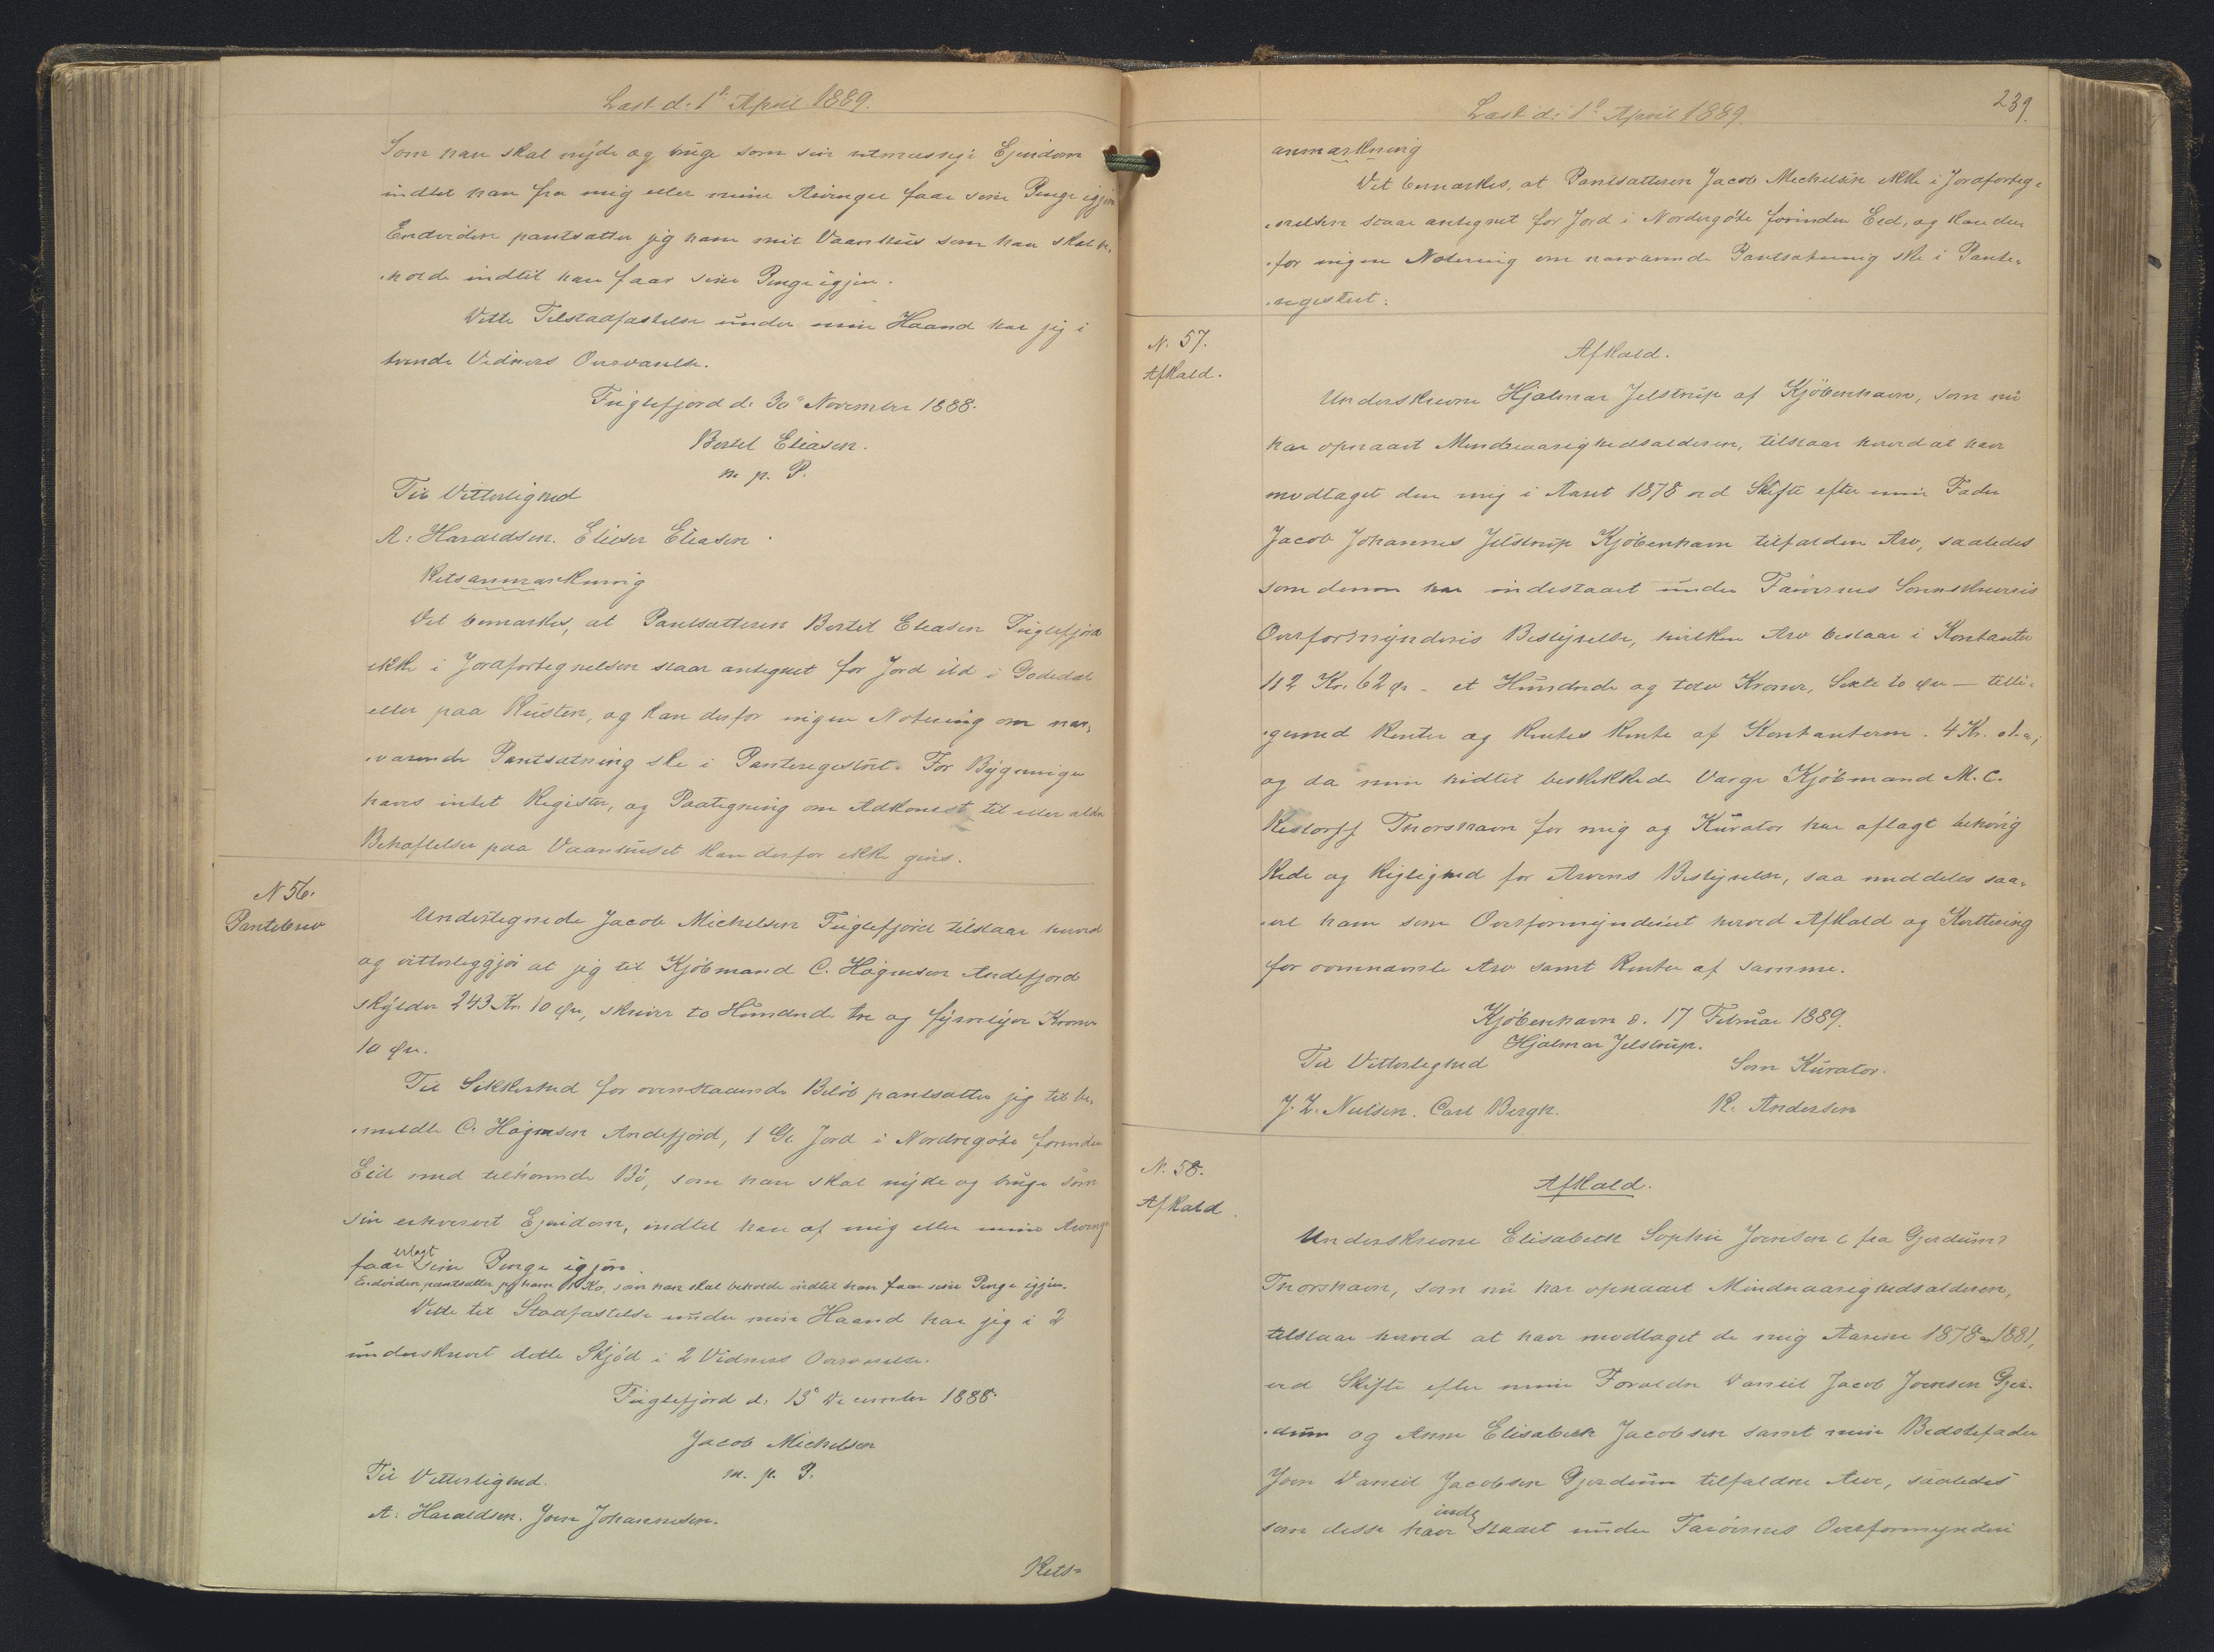 Læst d. 1ste April 1889.
Som han skal nyde og bruge som sin retmæssige Ejendom
indtil han fra mig eller mine Arvinger faar sine Penge igjen
Endvidere pantsætter jeg ham mit Vaanhus som han skal be-
-holde indtil han faar sine Penge igjen.
Dette Tilstadfæstelse under min Haand har jeg i
tvende Vidners Overværelse.
Fuglefjord d. 30" November 1888.
Bertel Eliasen.
m. p. P.
Til Vitterlighed
A: Haraldsen. Elieser Eliasen.
Retsanmærkning
Det bemærkes, at Pantsætteren Bertel Eliasen Fuglefjord
ikke i Jordfortegnelsen staar antegnet for Jord
eller paa Kusten, og kan derfor ingen Notering om nær-
-værende Pantsætning ske i Panteregistret. For Bygninger
haves intet Register, og Paategning om Adkomst til eller ældre
Behæftelser paa Vaanhuset kan derfor ikke gives.
N 56.
Pantebrev
Undertegnede Jacob Michelsen Fuglefjord tilstaar herved
og vitterliggjør at jeg til Kjøbmand C. Høgnesen Andefjord
skylder 243 Kr. 10 Øre, skriver to Hundrede tre og fyrretyve Kroner
10 Øre.
Til Sikkerhed for ovenstaaende Beløb pantsætter jeg til be-
-meldte C. Høgnesen Andefjord, 1 Gl. Jord i Nordregøte forinden
Eid med tilhørende Bø, som han skal nyde og bruge som
sin erhvervet Ejendom, indtil han af mig eller mine Arvinge
faar erlagt sine Penge igjen.
Endvidere pantsætter jeg ham 1 Ko, som han skal beholde indtil han faar sine Penge igjen.
Dette til Stadfæstelse under min Haand har jeg i 2
underskrevet dette Skjød i 2 Vidners Overværelse.
Fuglefjord d. 13" December 1888.
Jacob Michelsen
m. p. P.
Til Vitterlighed.
A: Haraldsen. Joen Johannesen.
Rets-
239.
Læst d. 1ste April 1889.
anmærkning
Det bemærkes, at Pantsætteren Jacob Michelsen ikke i Jordforteg-
-nelsen staar antegnet for Jord i Nordregøte forinden Eid, og kan der-
-for ingen Notering om nærværende Pantsætning ske i Pante-
-registret.
N. 57.
Afkald.
Afkald.
Underskrevne Hjalmar Jelstrup af Kjöbenhavn, som nu
har opnaaet Mindreaarighedsalderen, tilstaar herved at have
modtaget den mig i Aaret 1878 ved Skifte efter min Fader
Jacob Johannes Jelstrup Kjöbenhavn tilfalden Arv, saaledes
som denne har indestaaet under Færøernes Sorenskriveris
Overformynderis Bestyrelse, hvilken Arv bestaar i Kontanter
112 Kr. 62 Ør. - et Hundrede og tolv Kroner, Sexti to Øre - tilli-
-gemed Renter og Rentes Rente af Kontanterne. 4 Kr. o/o a;
og da min hidtil beskikkede Værge Kjöbmand M. C.
Restorff Thorshavn for mig og Kurator har aflagt behørig
Rede og Rigtighed for Arvens Bestyrelse, saa meddeles saa-
-vel ham som Overformynderiet herved Afkald og Kvittering
for ovennævnte Arv samt Renter af samme.
Kjöbenhavn d. 17 Februar 1889.
Hjalmar Jelstrup.
Til Vitterlighed
Som Kurator.
J. L. Nielsen. Carl Bergh.
R. Andersen
N. 58.
Afkald.
Afkald.
Underskrevne Elisabeth Sophie Joensen (fra Gjerdum)
Thorshavn, som nu har opnaaet Mindreaarighedsalderen,
tilstaar herved at have modtaget de mig Aarene 1878 og 1881,
ved Skifte efter mine Forældre Daniel Jacob Joensen Gjer-
-dum og Anne Elisabeth Jacobsen samt min Bedstefader
Joen Daniel Jacobsen Gjerdum tilfaldne Arve, saaledes
som disse have indestaaet under Færøernes Overformynderi